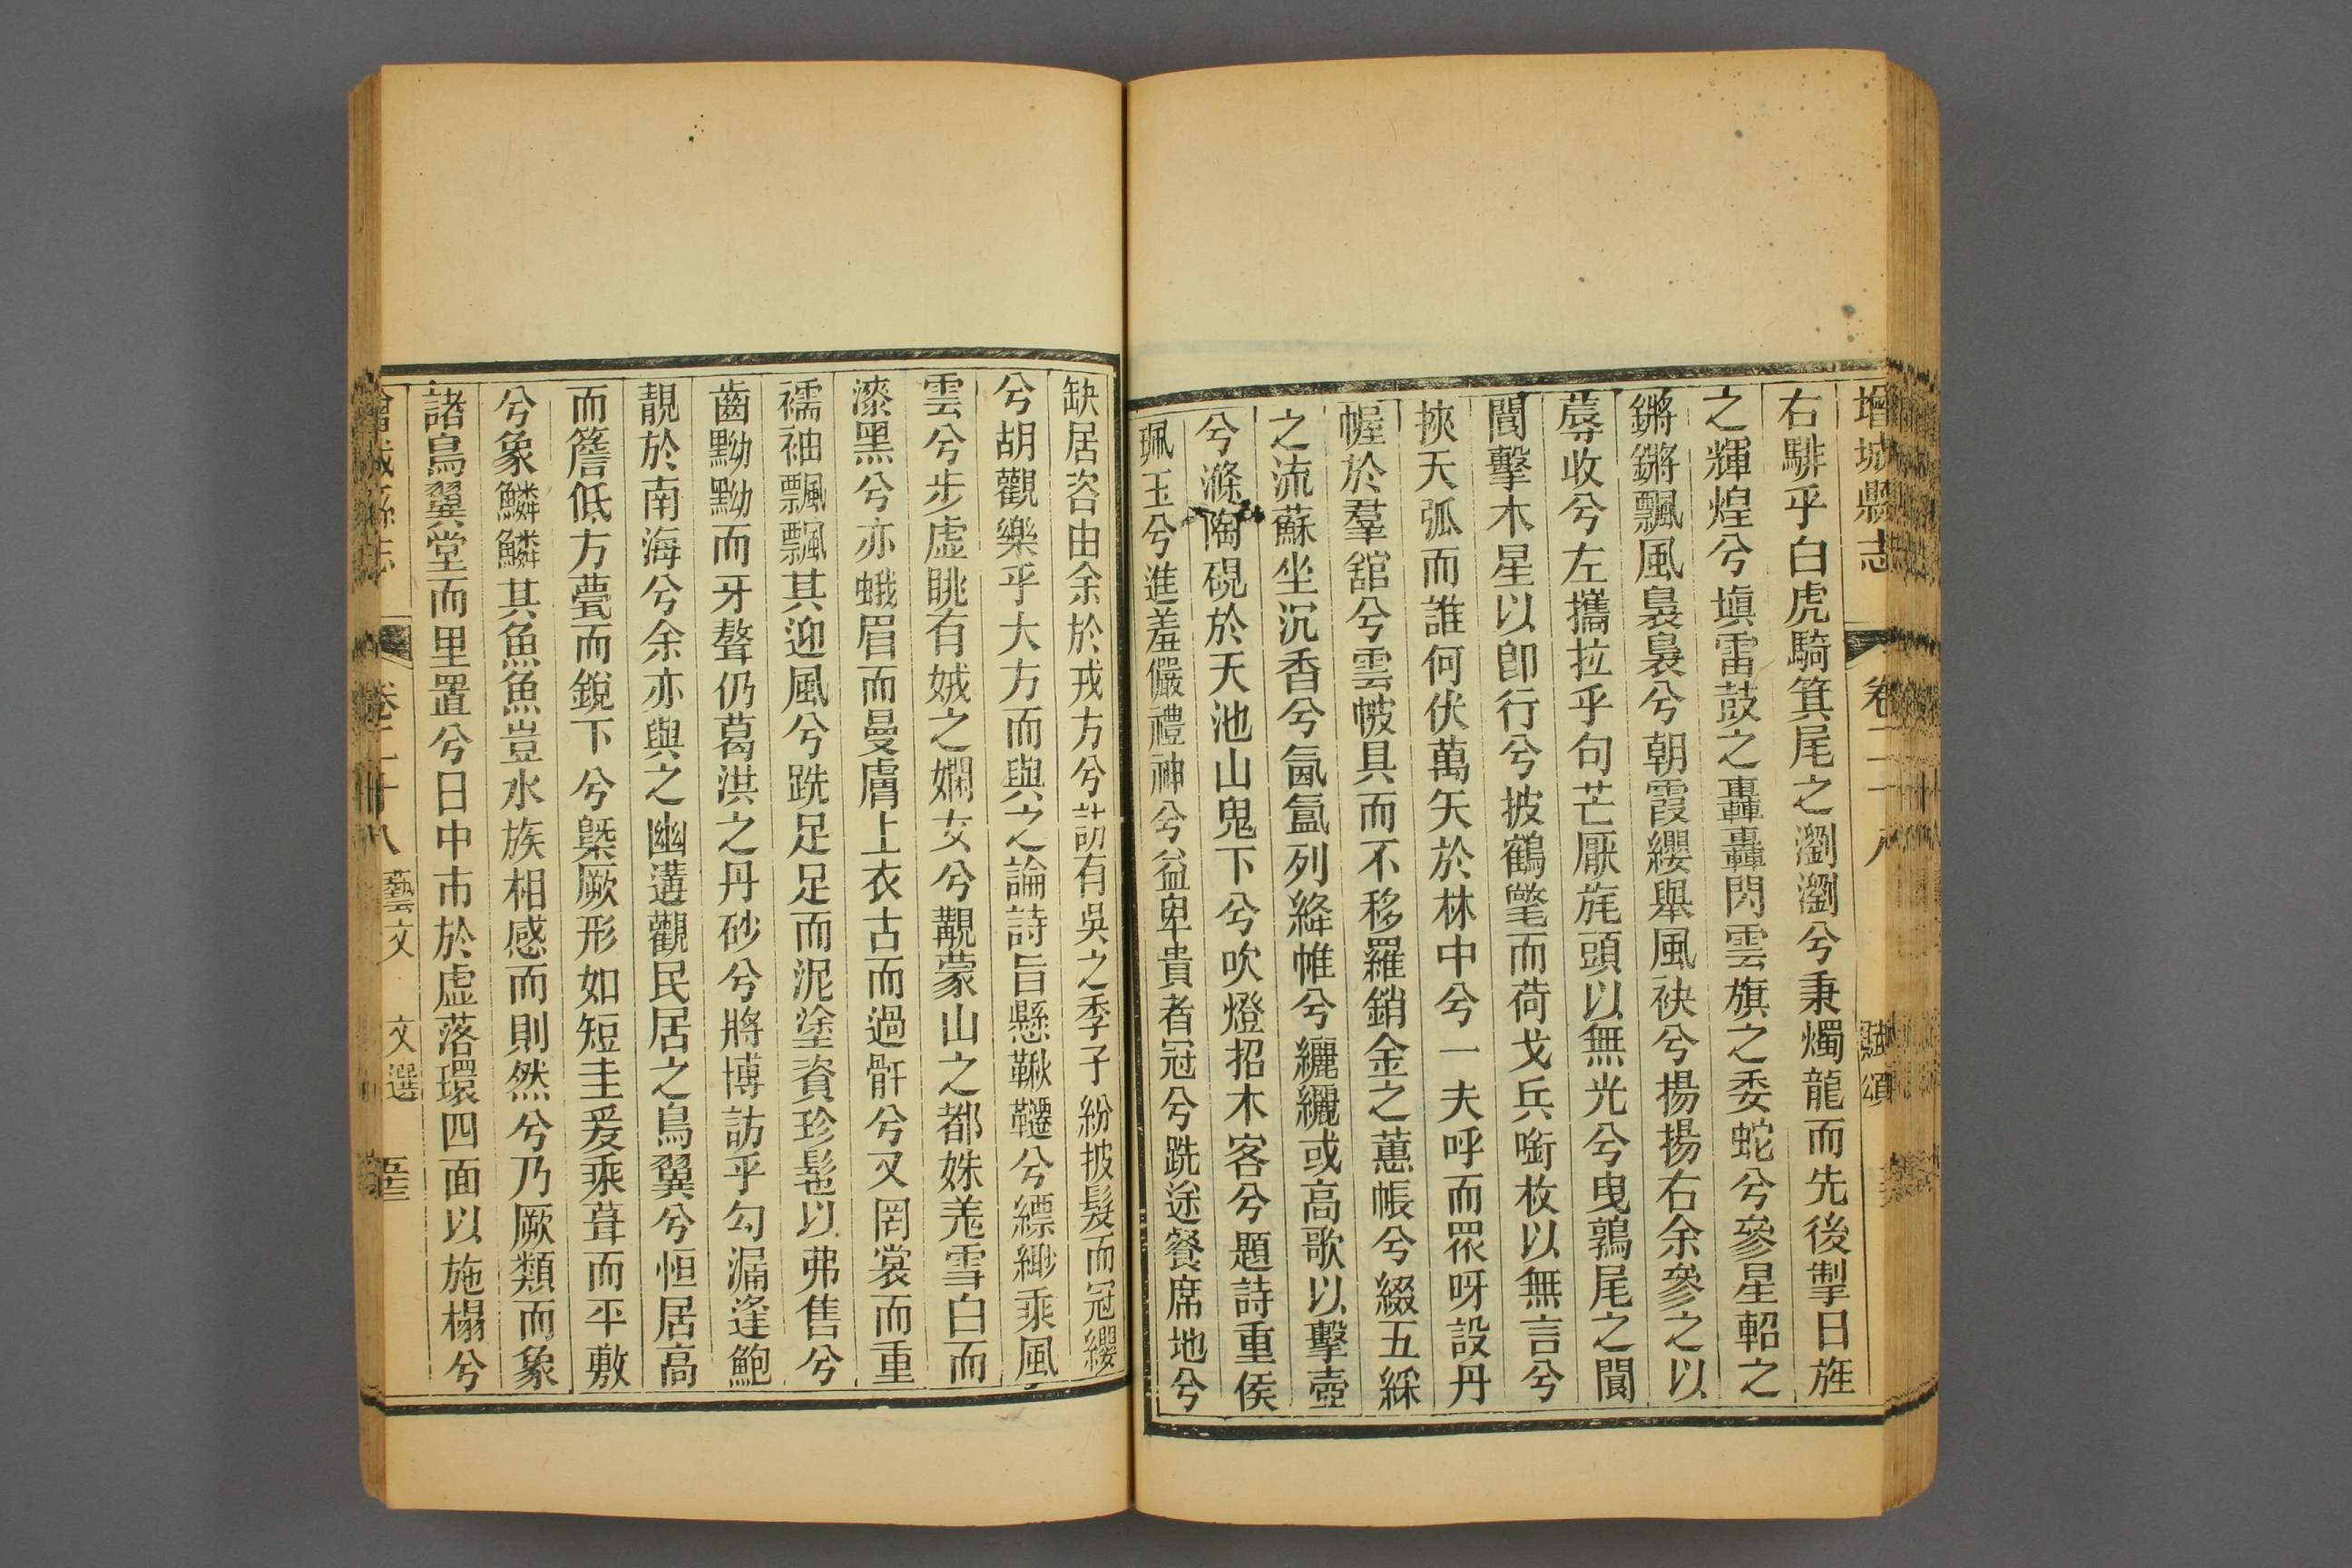 增城縣志 卷二十八 賦頌
右騑乎白虎騎箕尾之瀏瀏兮秉燭龍而先後掣日旌
之輝煌兮塡雷鼓之轟轟閃雲旗之委蛇兮參星軺之
鏘鏘飄風裊裊兮朝霞纓舉風袂兮揚揚右余參之以
蓐收兮左攜拉乎句芒厭旄頭以無光兮曳鶉尾之閬
閬擊木星以卽行兮披鶴氅而荷戈兵銜枚以無言兮
挾天弧而誰何伏萬矢於林中兮一夫呼而眾呀設丹
幄於羣舘兮雲帔具而不移羅銷金之蕙帳兮綴五綵
之流蘇坐沉香兮氤氳列絳帷兮纚纚或高歌以擊壺
兮滌陶硯於天池山鬼下兮吹燈招木客兮題詩重侯
珮玉兮進羞儼禮神兮益卑貴者冠兮跣途餐席地兮
缺居咨由余於戎方兮訪有吳之季子紛披髮而冠纓
兮胡觀樂乎大方而與之論詩旨懸鞦韆兮縹緲乘風
雲兮步虛眺有娀之嫻女兮覯蒙山之都姝羌雪白而
漆黑兮亦蛾眉而曼膚上衣古而過骭兮又罔裳而重
襦袖飄飄其迎風兮跣足足而泥塗資珍髢以弗售兮
齒黝黝而牙聱仍葛洪之丹砂兮將博訪乎勾漏逢鮑
靚於南海兮余亦與之幽遘觀民居之鳥翼兮恒居高
而簷低方甍而銳下兮槩厥形如短圭爰乘葺而平敷
兮象鱗鱗其魚魚豈水族相感而則然兮乃厥類而象
諸鳥翼堂而里置兮日中市於虛落環四面以施榻兮
增城縣志 卷二十八 藝文 文選 五三